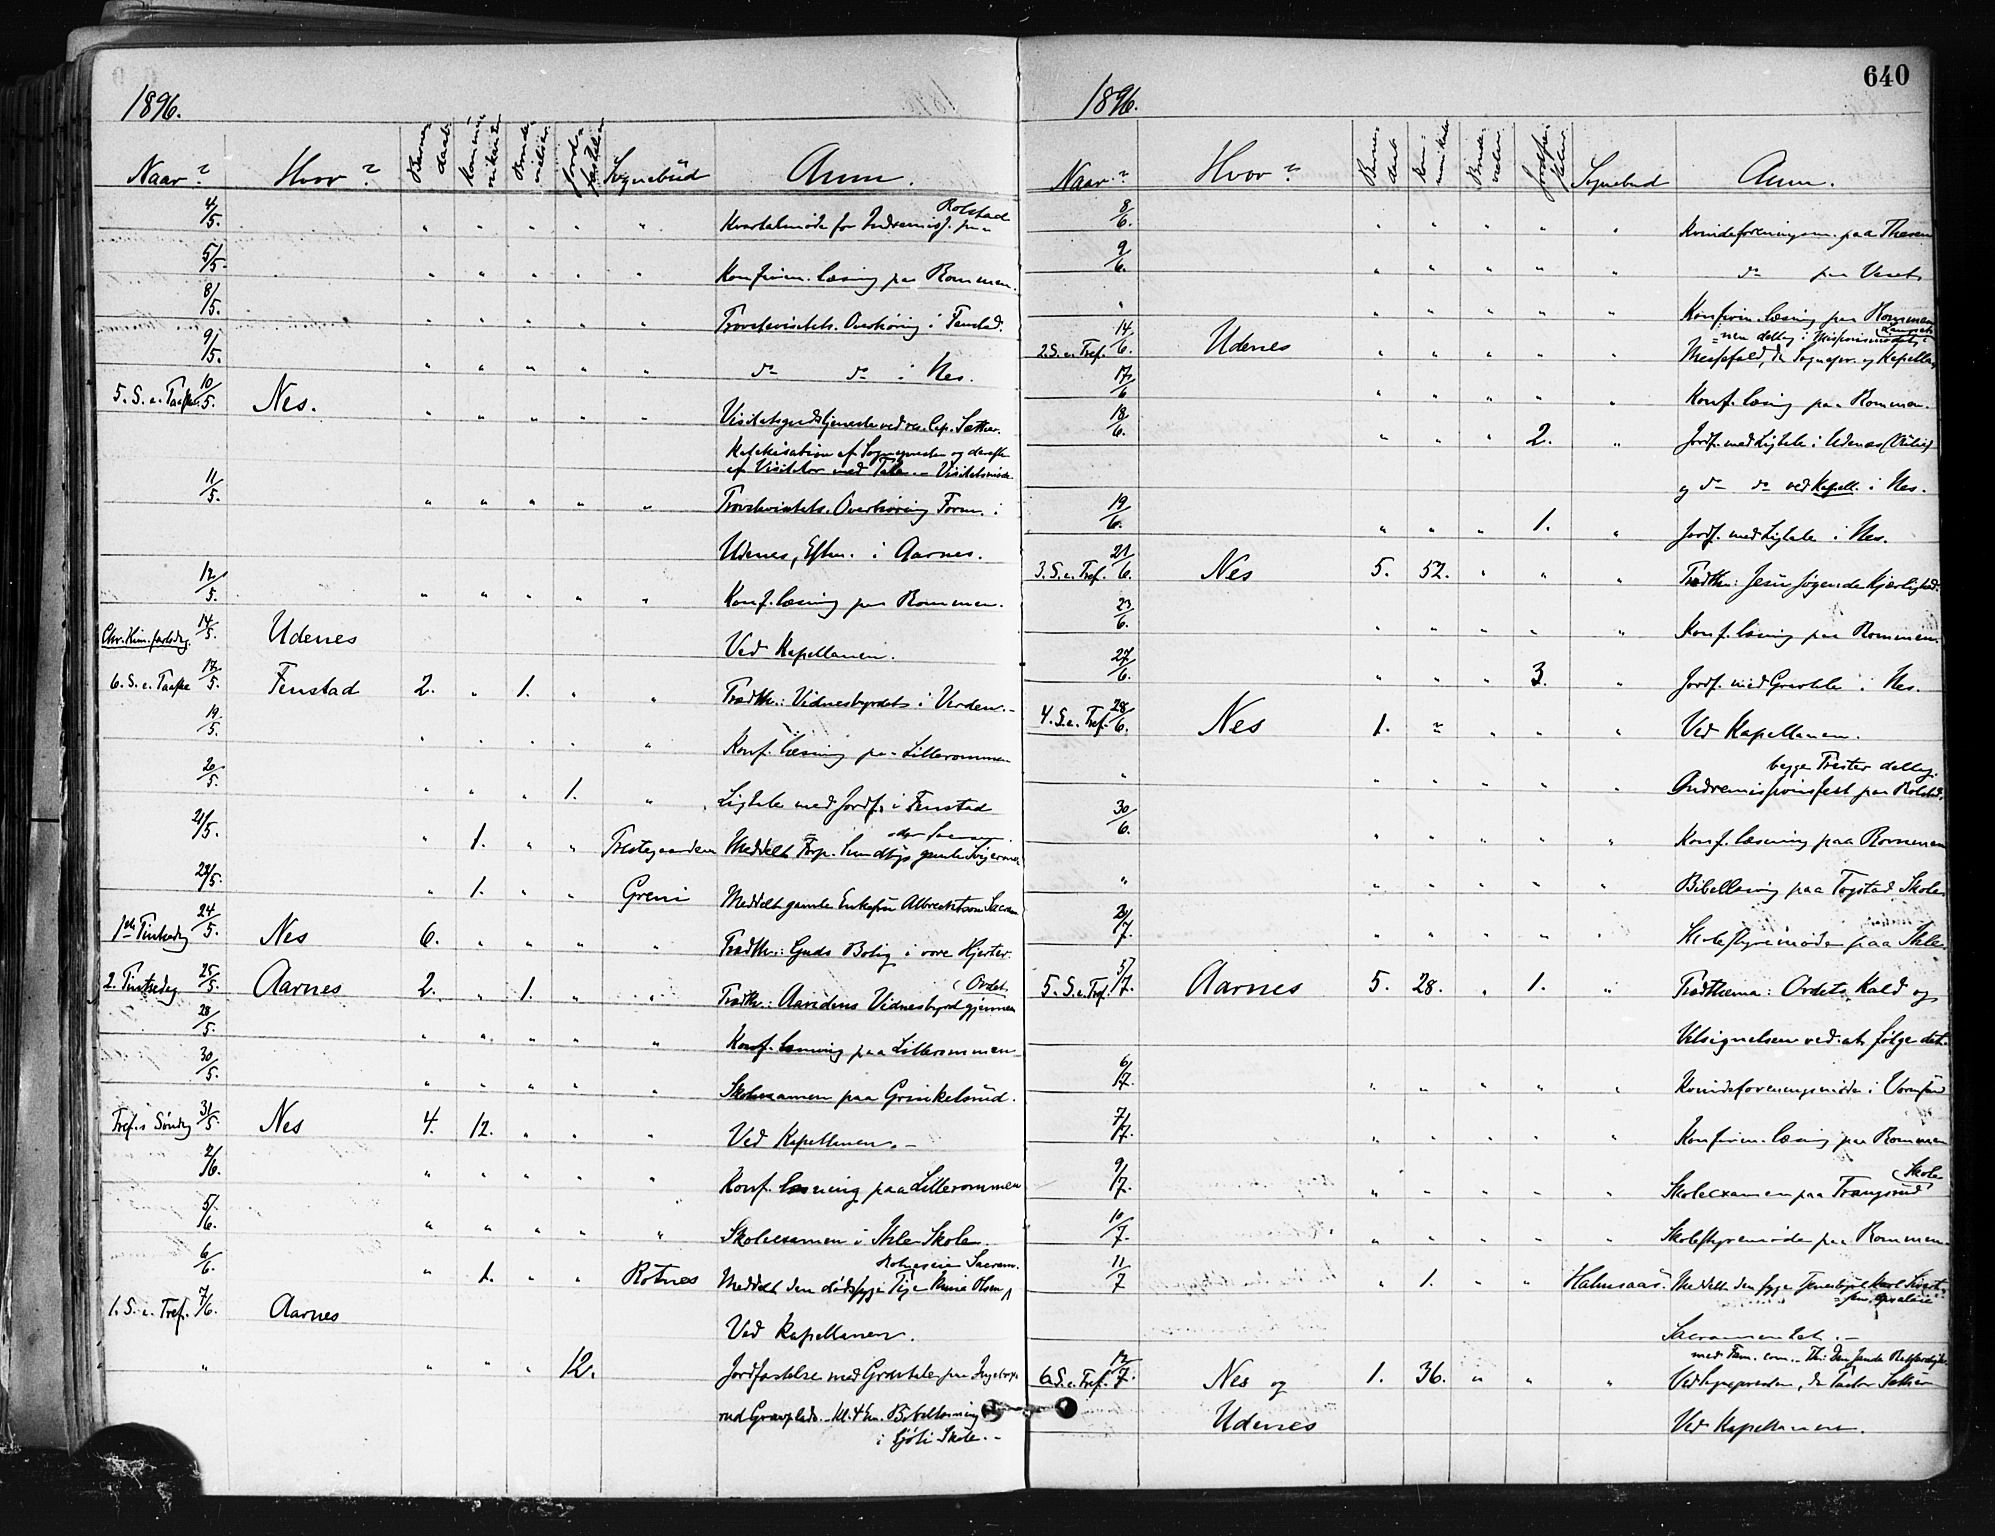 1896.
Naar? Hvor? Barnedaab. Kommunikanter Brudevielser Jordfæstelser Sognebud Anm.
4/5. " " " " " Kvartalmøde for Indremisj. paa Rolstad
5/5. " " " " " Konfirm. læsning paa Rommen.
8/5. " " " " " Provstevisitats. Overhøring i Fenstad.
9/5. " " " " " do do i Nes.
5. S. e. Paaske 10/5. Nes. " " " " " Visitatsgudstjeneste ved res. Cap. Sæther.
Katekisation af Sognepresten og derefter
af Visitator med Tale. - Visitatsmøde.
11/5. " " " " " Provstevisitats. Overhøring Form. i
Udenes, Efterm. i Aarnes.
12/5. " " " " " Konf. læsning paa Rommen.
Chr. Him. fartsdag 14/5. Udenes Ved Kapellanen.
6. S. e. Paaske 17/5. Fenstad 2. " 1. " " Prædth.: Vidnesbyrdet i Verden. -
19/5. " " " " " Konf. læsning paa Lillerommen
20/5. " " " 1. " Ligtale med Jordf. i Fenstad
21/5. " 1. " " Prestegaarden Meddelt Forp. Sundbys gamle Svigermor
22/5. " 1. " " Greni Meddelt gamle Enkefru Albrechtson Sacram
1ste Pintsedag 24/5. Nes 6. " " " " Prædth.: Guds Bolig i vore Hjerter.
2. Pintsedag 25/5. Aarnes 2. " 1. " " Prædth.: Aandens Vidnesbyrd gjennem Ordet.
28/5. " " " " " Konf. læsning paa Lillerommen
30/5. " " " " " Skoleexamen paa Grinkelsrud.
Tref.s Søndag 31/5. Nes 4. 12. " " " Ved Kapellanen. -
2/6. " " " " " Konf. læsning paa Lillerommen
5/6. " " " " " Skoleexamen i Skole.
6/6. " 1. " " Rotnes Meddelt den dødssyge Pige Olsen Rotneseie Sacram.
1. S. e. Tref. 7/6. Aarnes Ved Kapellanen.
" " " " 12. Jordfæstelse med Gravtale paa
rud Gravplads. - Kl. 4 Em. Bibellæsning
i Skole. -
640
1896.
Naar? Hvor? Barnedaab Kommunikanter Brudevielser Jordfæstelser Sognebud Anm.
8/6. " " " " " Kvindeforeningsm. paa Thesen
9/6. " " " " " do paa
" " " " " " Konfirm. læsning paa Rommen
2. S. e. Tref. 14/6. Udenes " " " " " Messefald, da Sognepr. og Kapellanen deltog i Missionsmødet i
17/6 " " " " " Konf. læsning paa Rommen.
18/6. " " " 2. " Jordf. med Ligtale i Udenes
og do do ved Kapell. i Nes.
19/6. " " " 1. " Jordf. med Ligtale i Nes.
3. S. e. Tref. 21/6. Nes 5. 52. " " " Prædth: Jesu søgende Kjærlighed.
23/6. " " " " " Konf. læsning paa Rommen.
27/6. " " " 3. " Jordf. med Gravtale i Nes.
4. S. e. Tref. 28/6. Nes 1. " " " " Ved Kapellanen.
begge Prester deltog.
" " " " " " Indremissionsfest paa Rolstad.
30/6. " " " " " Konf. læsning paa Rommen
" " " " " " Bibellæsning paa Togstad Skole
2/7. " " " " " Skolestyremøde paa
5. S. e. Tref. 5/7. Aarnes 5. 28. " 1. " Prædthema: Ordets Kald og
Velsignelsen ved at følge det.
6/7. " " " " " Kvindeforeningsmøde i Vormsund
7/7. " " " " " Konfirm. læsning paa Rommen
9/7. " " " " " Skoleexamen paa Trangsrud Skole
10/7. " " " " " Skolestyremøde paa Rommen.
11/7 " 1. " " Halmsaas. Meddelt den syge
Sacramentet. -
6. S. e. Tref. 12/7. Nes og 1. 36. " " " Ved Sognepresten, da Pastor Sæther
Udenes Ved Kapellanen.